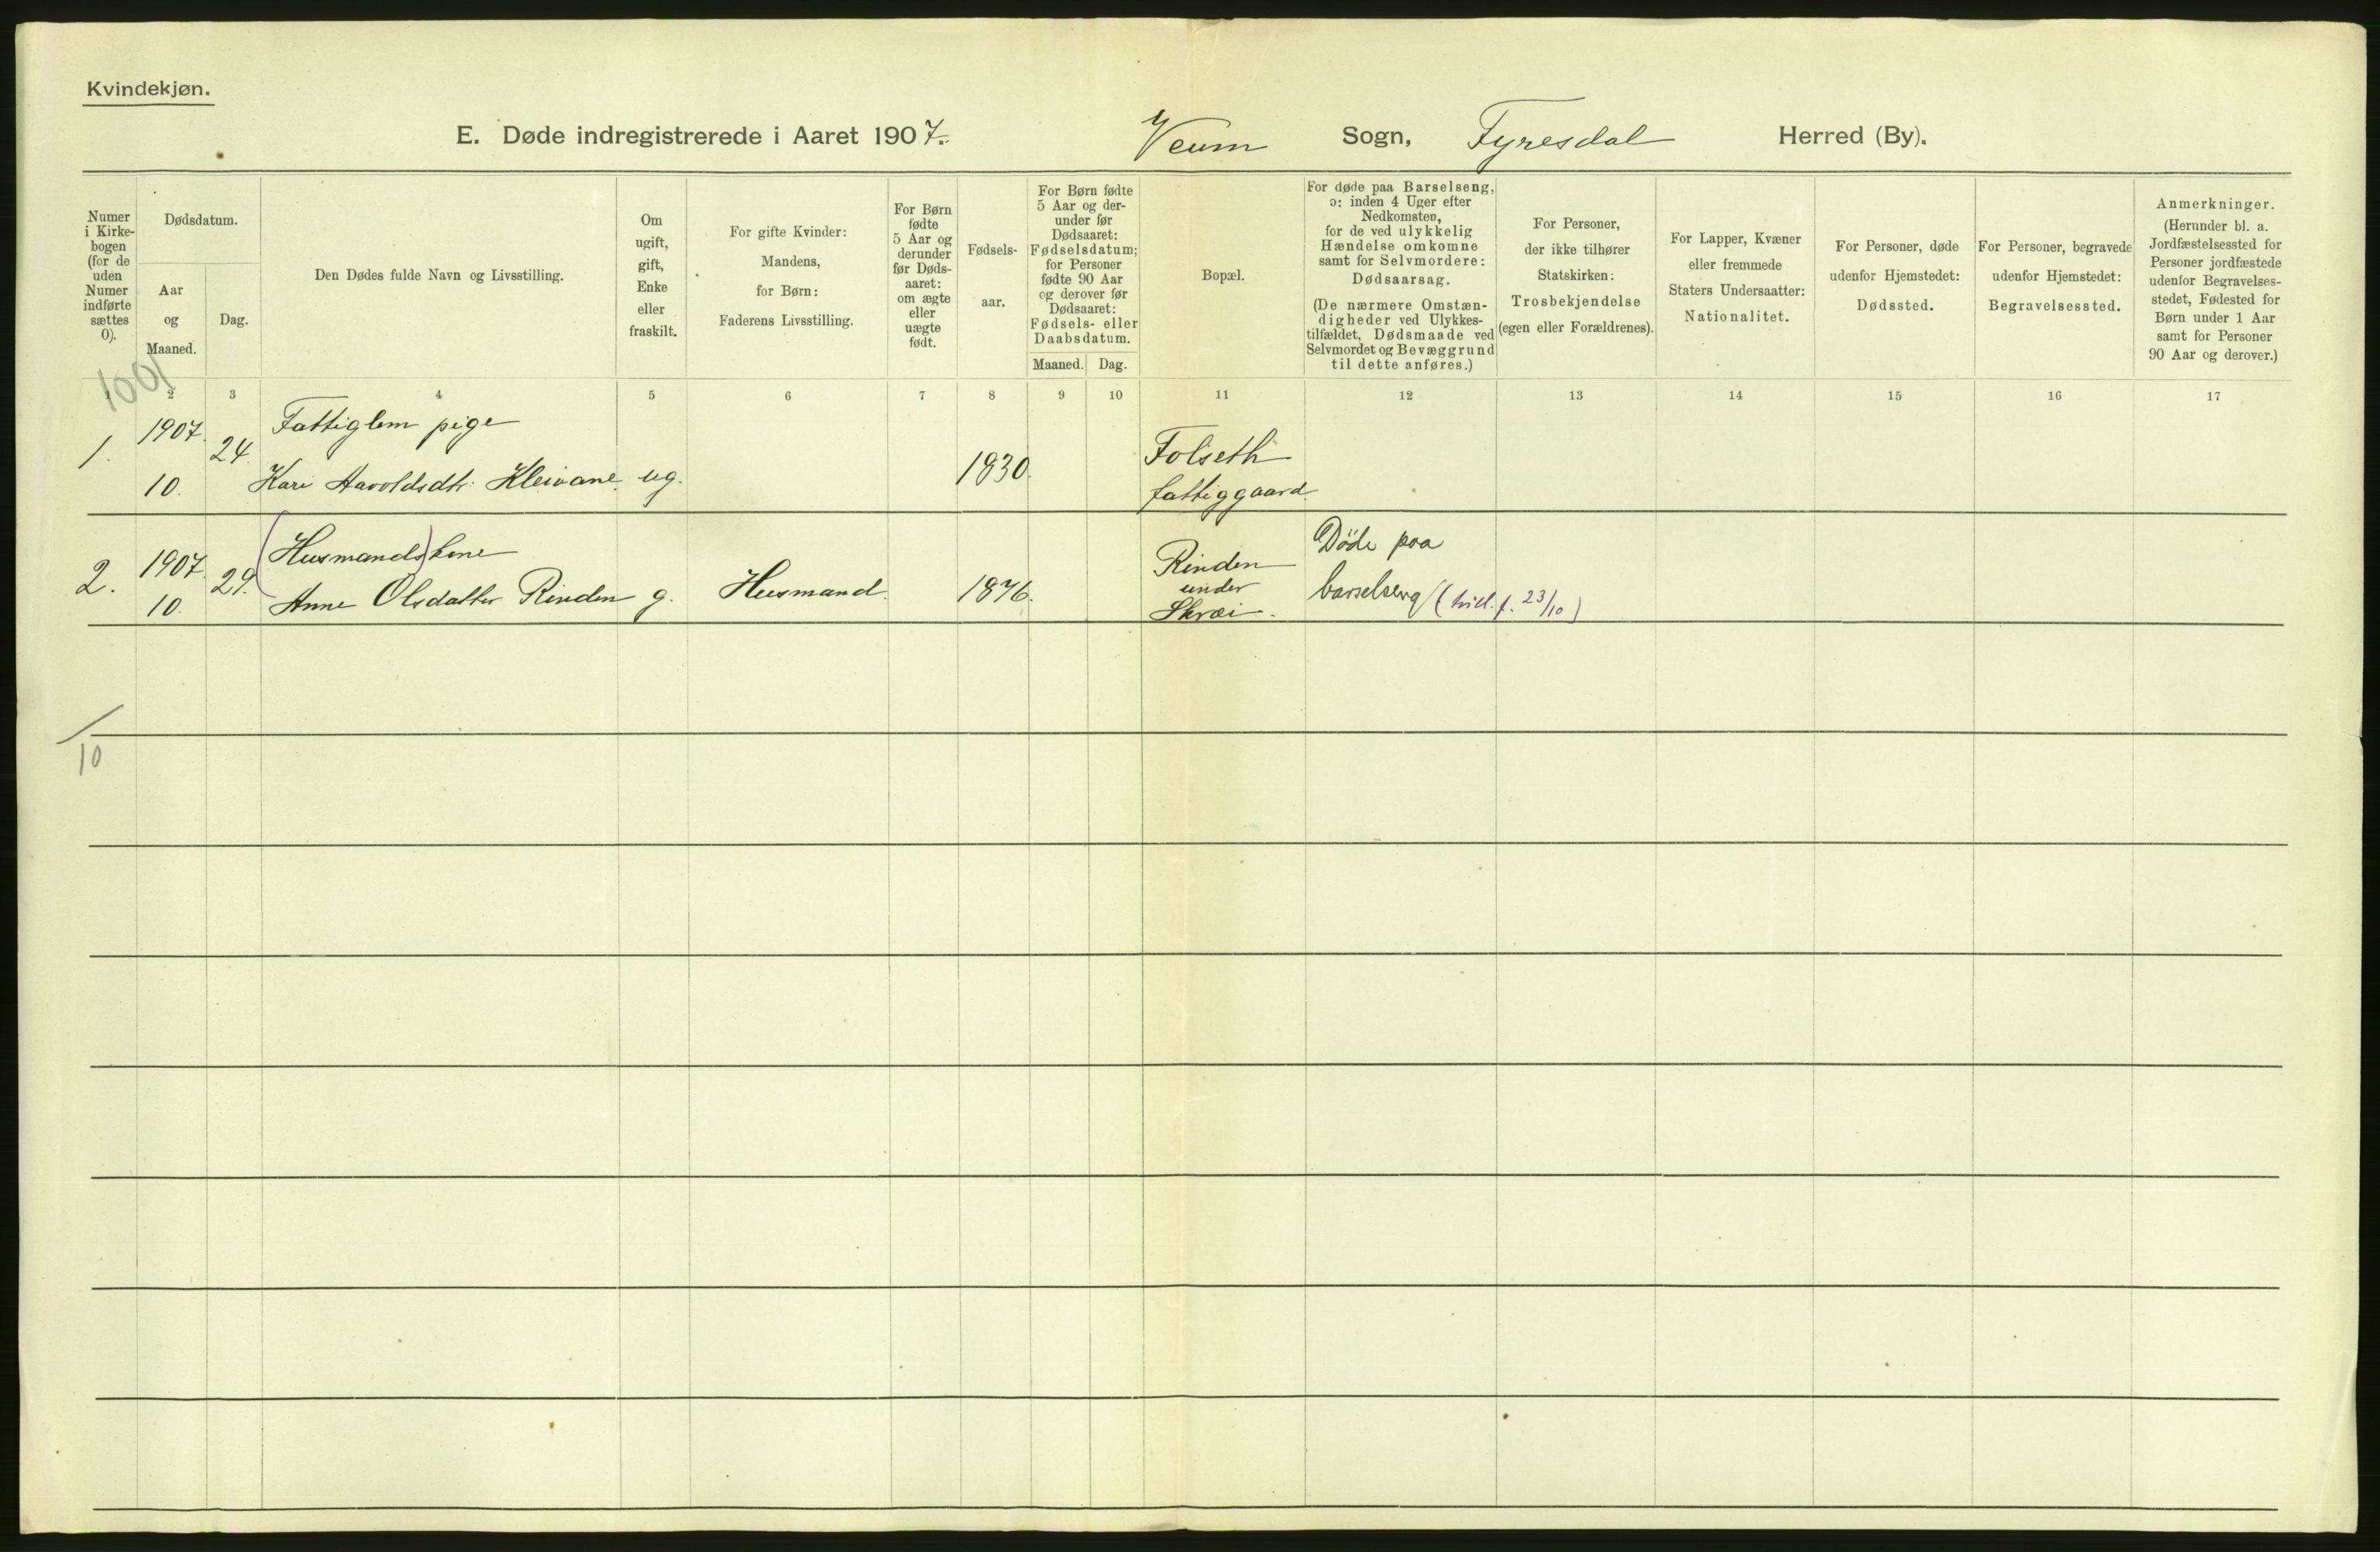 Kvindekjøn.
E. Døde indregistrerede i Aaret 1907. Veum Sogn, Fyresdal Herred (By).
Numer
i Kirke-
bogen
(for de
uden
Numer
indførte
sættes
0).
Dødsdatum.
Aar
og
Maaned.
Dag.
Den Dødes fulde Navn og Livsstilling.
Om
ugift,
gift,
Enke
eller
fraskilt.
For gifte Kvinder:
Mandens,
for Børn:
Faderens Livsstilling.
For Børn
fødte
5 Aar og
derunder
før Døds-
aaret:
om ægte
eller
uægte
født.
Fødsels-
aar.
For Børn fødte
5 Aar og der-
under før
Dødsaaret:
Fødselsdatum;
for Personer
fødte 90 Aar
og derover før
Dødsaaret:
Fødsels- eller
Daabsdatum.
Maaned. Dag.
Bopæl.
For døde paa Barselseng,
ɔ: inden 4 Uger efter
Nedkomsten,
for de ved ulykkelig
Hændelse omkomne
samt for Selvmordere:
Dødsaarsag.
(De nærmere Omstæn-
digheder ved Ulykkes-
tilfældet, Dødsmaade ved
Selvmordet og Bevæggrund
til dette anføres.)
For Personer,
der ikke tilhører
Statskirken:
Trosbekjendelse
(egen eller Forældrenes).
For Lapper, Kvæner
eller fremmede
Staters Undersaatter:
Nationalitet.
For Personer, døde
udenfor Hjemstedet:
Dødssted.
For Personer, begravede
udenfor Hjemstedet:
Begravelsessted.
Anmerkninger.
(Herunder bl. a.
Jordfæstelsessted for
Personer jordfæstede
udenfor Begravelses-
stedet, Fødested for
Børn under 1 Aar
samt for Personer
90 Aar og derover.)
1001
1 2 3 4 5 6 7 8 9 10 11 12 13 14 15 16 17
1. 1907. 24. Fattiglem pige 1830. Folseth
10. Kari Aavoldsdtr. Kleivane. ug. fattiggaard.
2. 1907. 29. (Husmands)kone Rinden Döde paa
10. Anne Olsdatter Rinden g. Husmand. 1876. under barselseng (tvill. f. 23/10)
Skræi.
/10